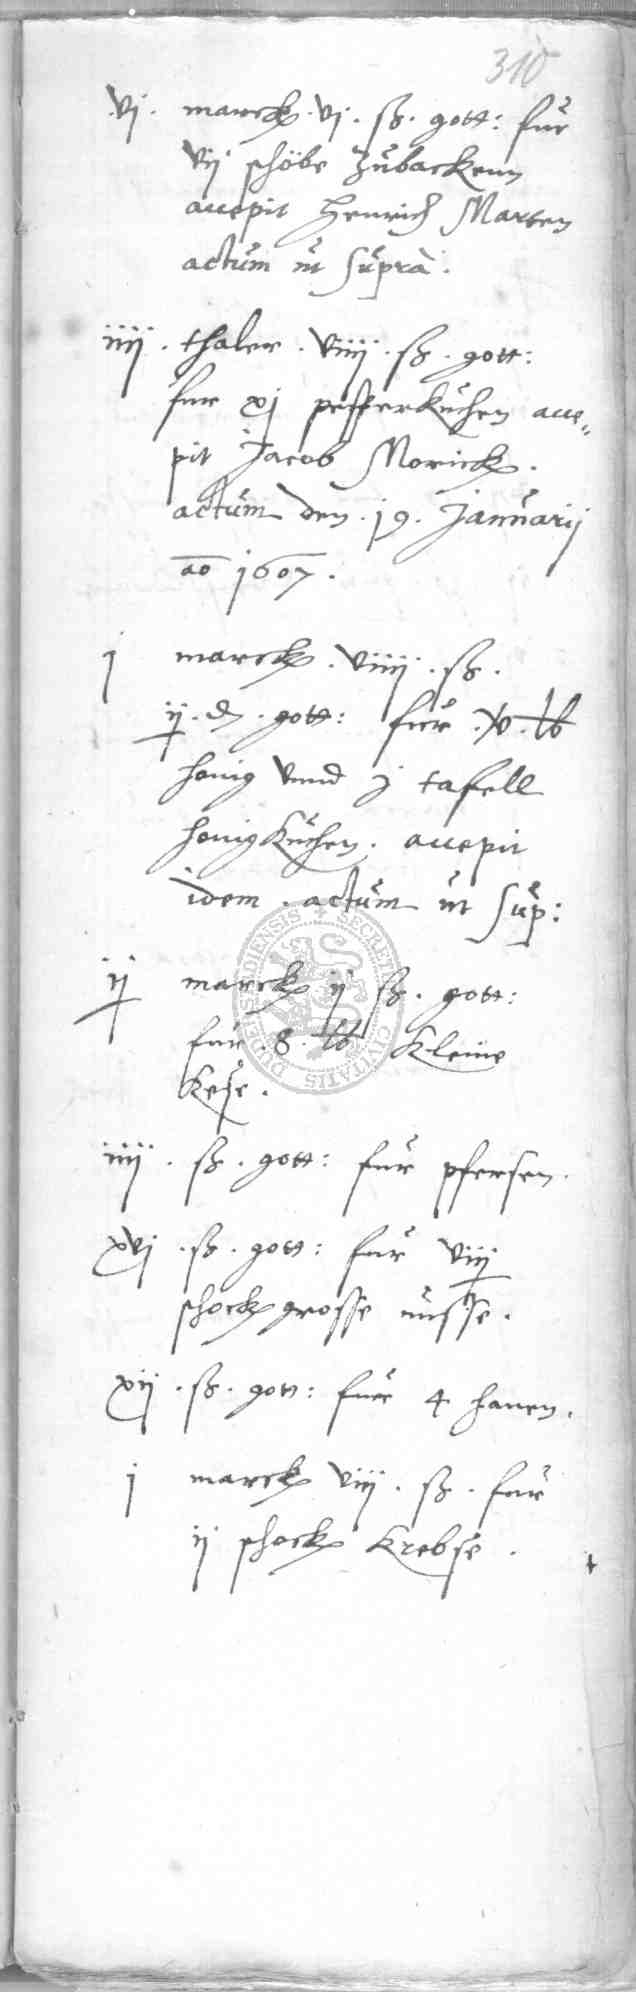 310
vj. marck. vj. ß. gott: für
vij schöbe Zübackenn
accepit Henrich Marten
actum ut supra.
iiij. thaler. viiij. ß. gott:
fur xj pfefferküchen acce„
pit Jacob Morick.
actum den. 19. Januarij
ao 1607.
j marck. viiij. ß.
ij. d. gott: für. v. lb
honig vnnd j tafell
honigküchen. accepit
idem. actum ut sup:
ij marck ij ß. gott:
für. 8. lb kleine
kese.
iiij. ß. gott: für pfersen.
xvj. ß. gott: für viij
schock grosse nüsse.
xij. ß. gott: für 4 hanen.
j marck viij. ß. für
ij schock krebse.
SECRETUM CIVITATIS DUDERSTADIENSIS